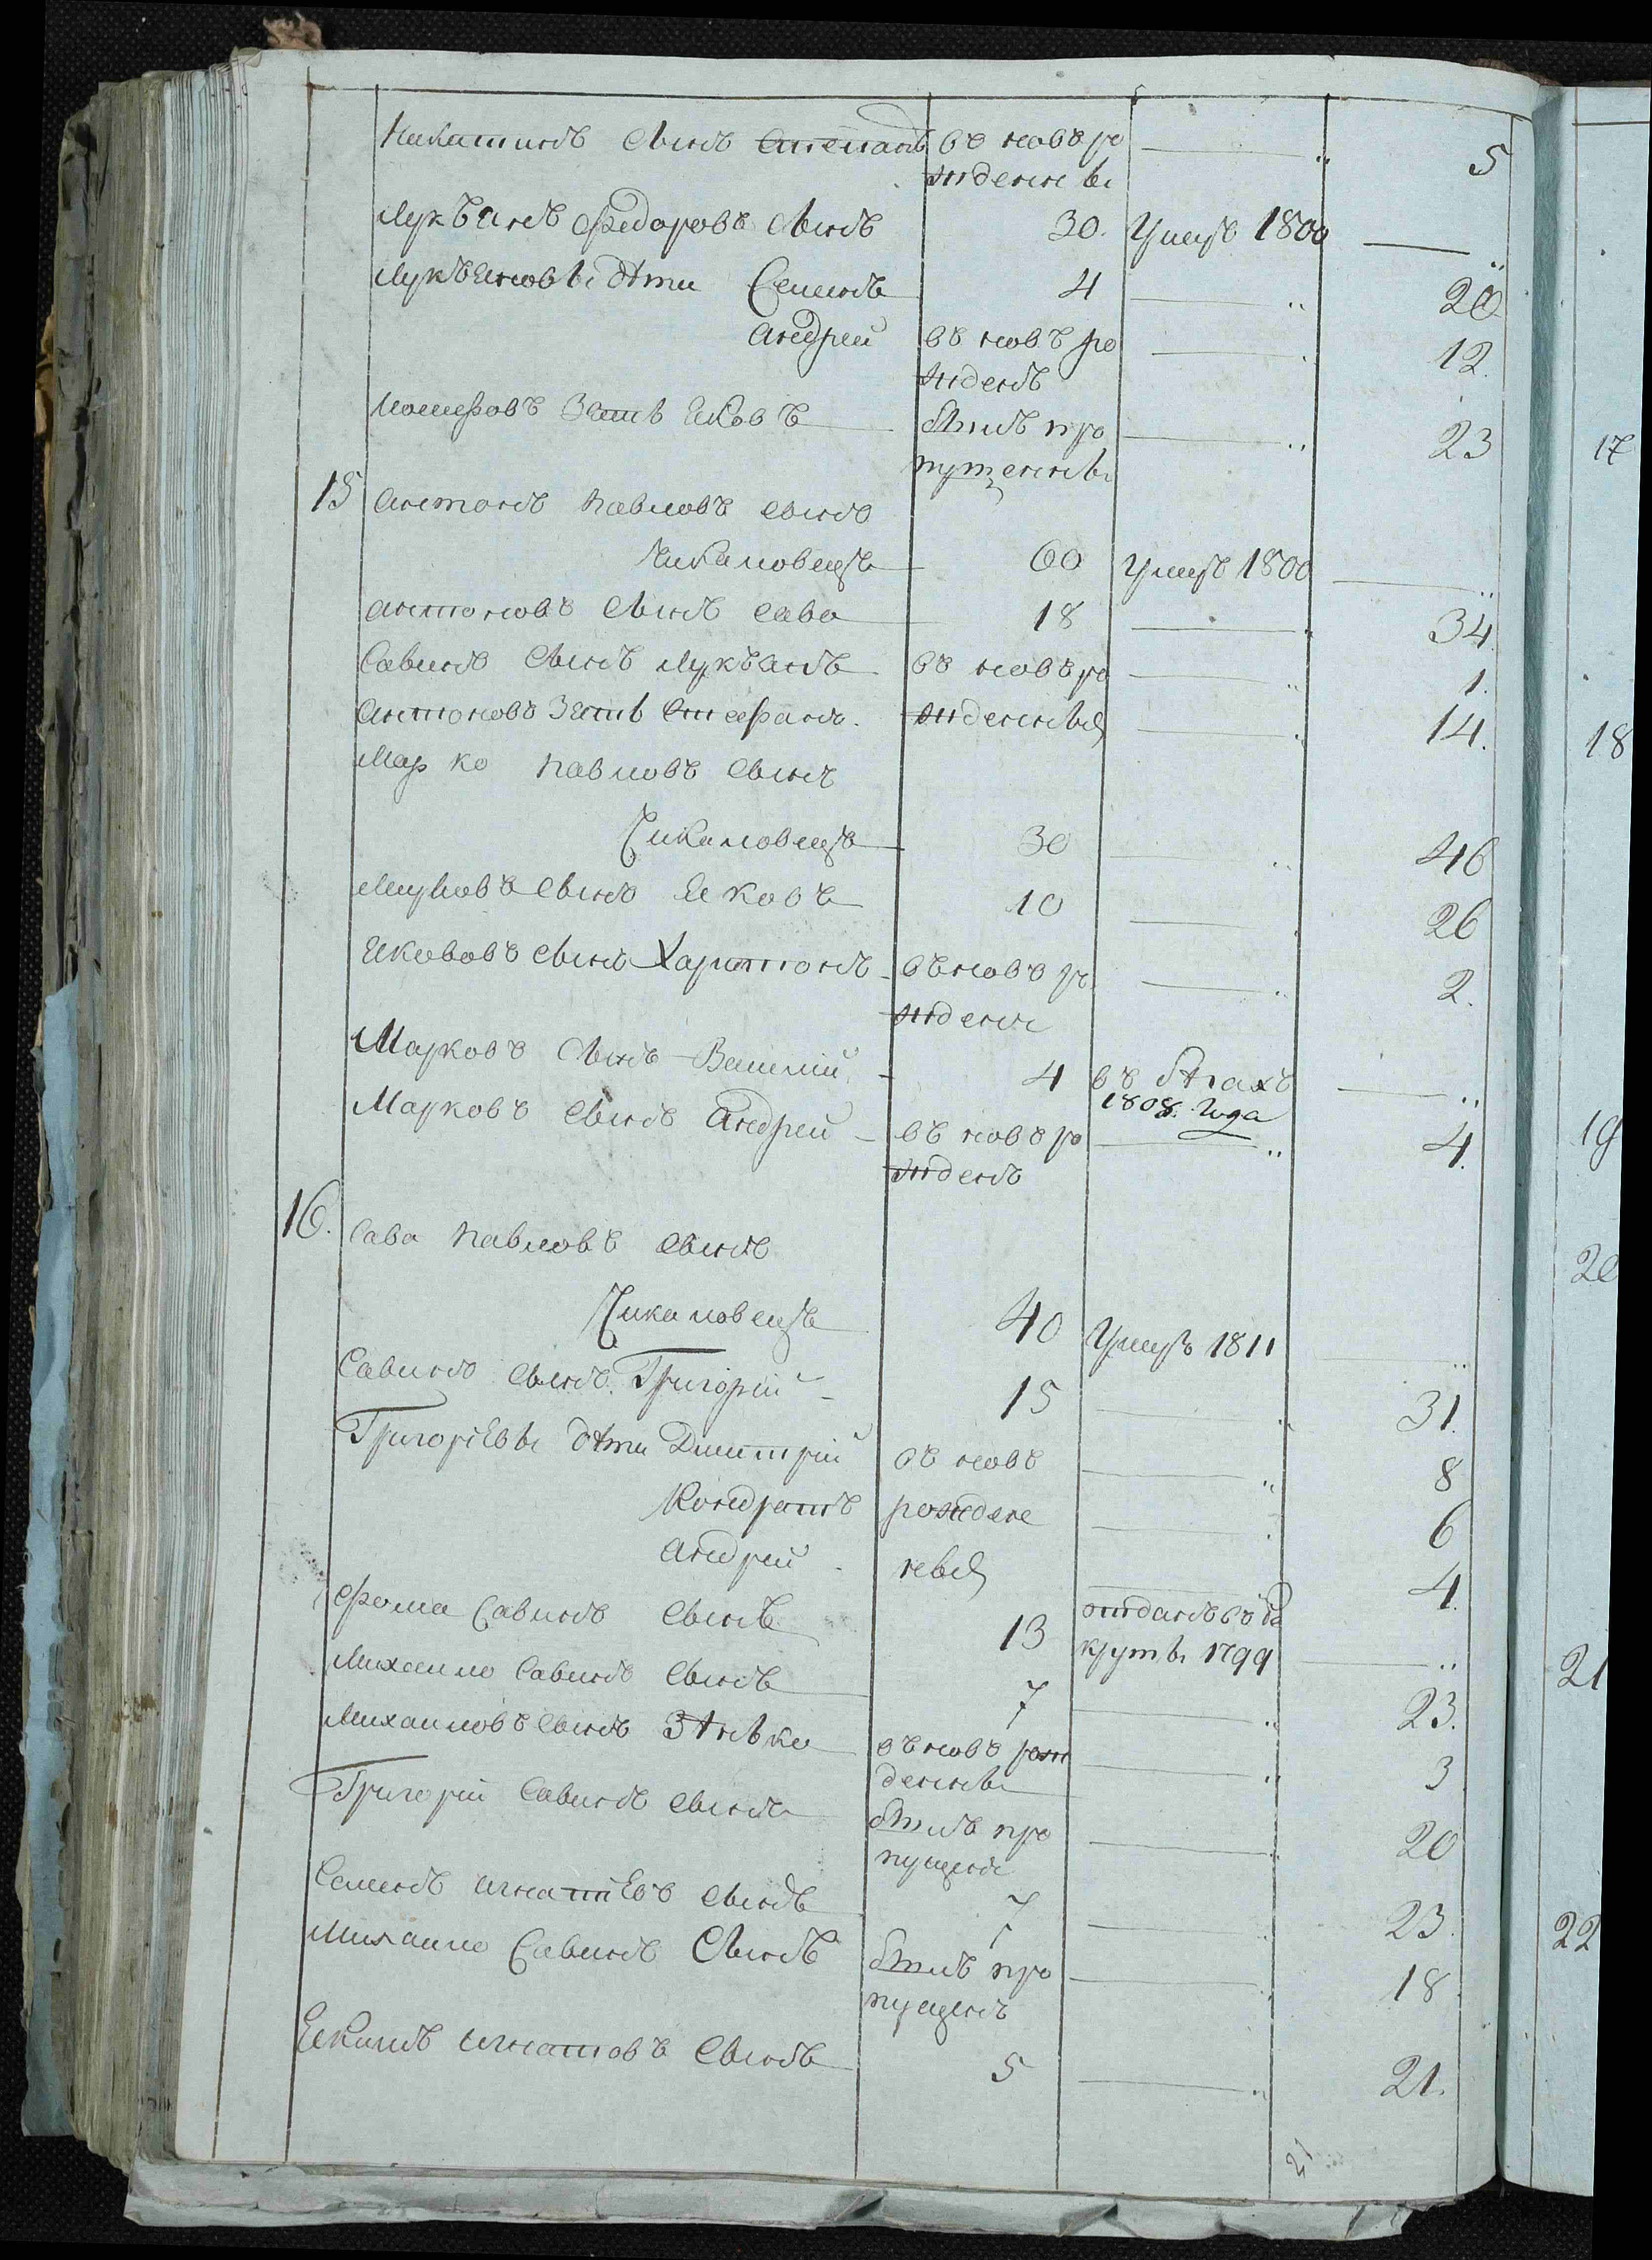 Никитинъ сынъ Степанъ въ новъ ро 5
жденны
Лукъянъ Федоровъ сынъ 30. Умеръ 1800
Лукъяновы дѣти Семенъ 4 20
Андрей въ новъ ро 12.
жденъ
зять Яковъ былъ про 23
пущенны
15 Антонъ Павловъ сынъ
Чикаловецъ 60 Умеръ 1800
Антоновъ сынъ Сава 18 34
Савинъ сынъ Лукъянъ въ новъ ро 1.
Антоновъ зять Стефанъ. жденныя 14.
Марко Павловъ сынъ
Чикаловецъ 30 46
сынъ Яковъ 10 26
Якововъ сынъ Харитонъ въ новъ ро 2.
жденъ
Марковъ сынъ Василій 4 въ бѣгахъ
1808. года
Марковъ сынъ Андрей въ новъ ро 4.
жденъ
16. Сава Павловъ сынъ
Чикаловецъ 40 Умеръ 1811
Савинъ сынъ Григорій 15 31.
Григорiевы дѣти Дмитрій въ новъ 8
Кондратъ рожден 6
Андрей ныя 4.
Фома Савинъ сынъ 13 отданъ въ ре
круты 1799
Михаило Савинъ сынъ 7 23.
Михаиловъ сынъ Зѣнько въ новъ рож 3
денны
Григорій Савинъ сынъ былъ про 20
пущенъ
Семенъ Игнатіевъ сынъ 7 23.
Михаило Савинъ сынъ былъ про 18.
пущенъ
Якимъ Игнатовъ сынъ 5 21.
21
17
18
19
20
21
22